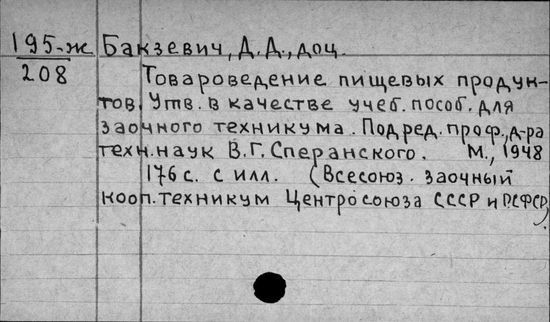 195-ж Бакзевич, Д.Д., доц.
208
Товароведение пищевых продук-
тов. Утв. в качестве учеб. пособ. для
заочного техникума. Под ред. проф., д-ра
техн. наук В.Г. Сперанского. М., 1948
176 с. с илл. (Всесоюз. заочный
кооп. техникум Центросоюза СССР и РСФСР).